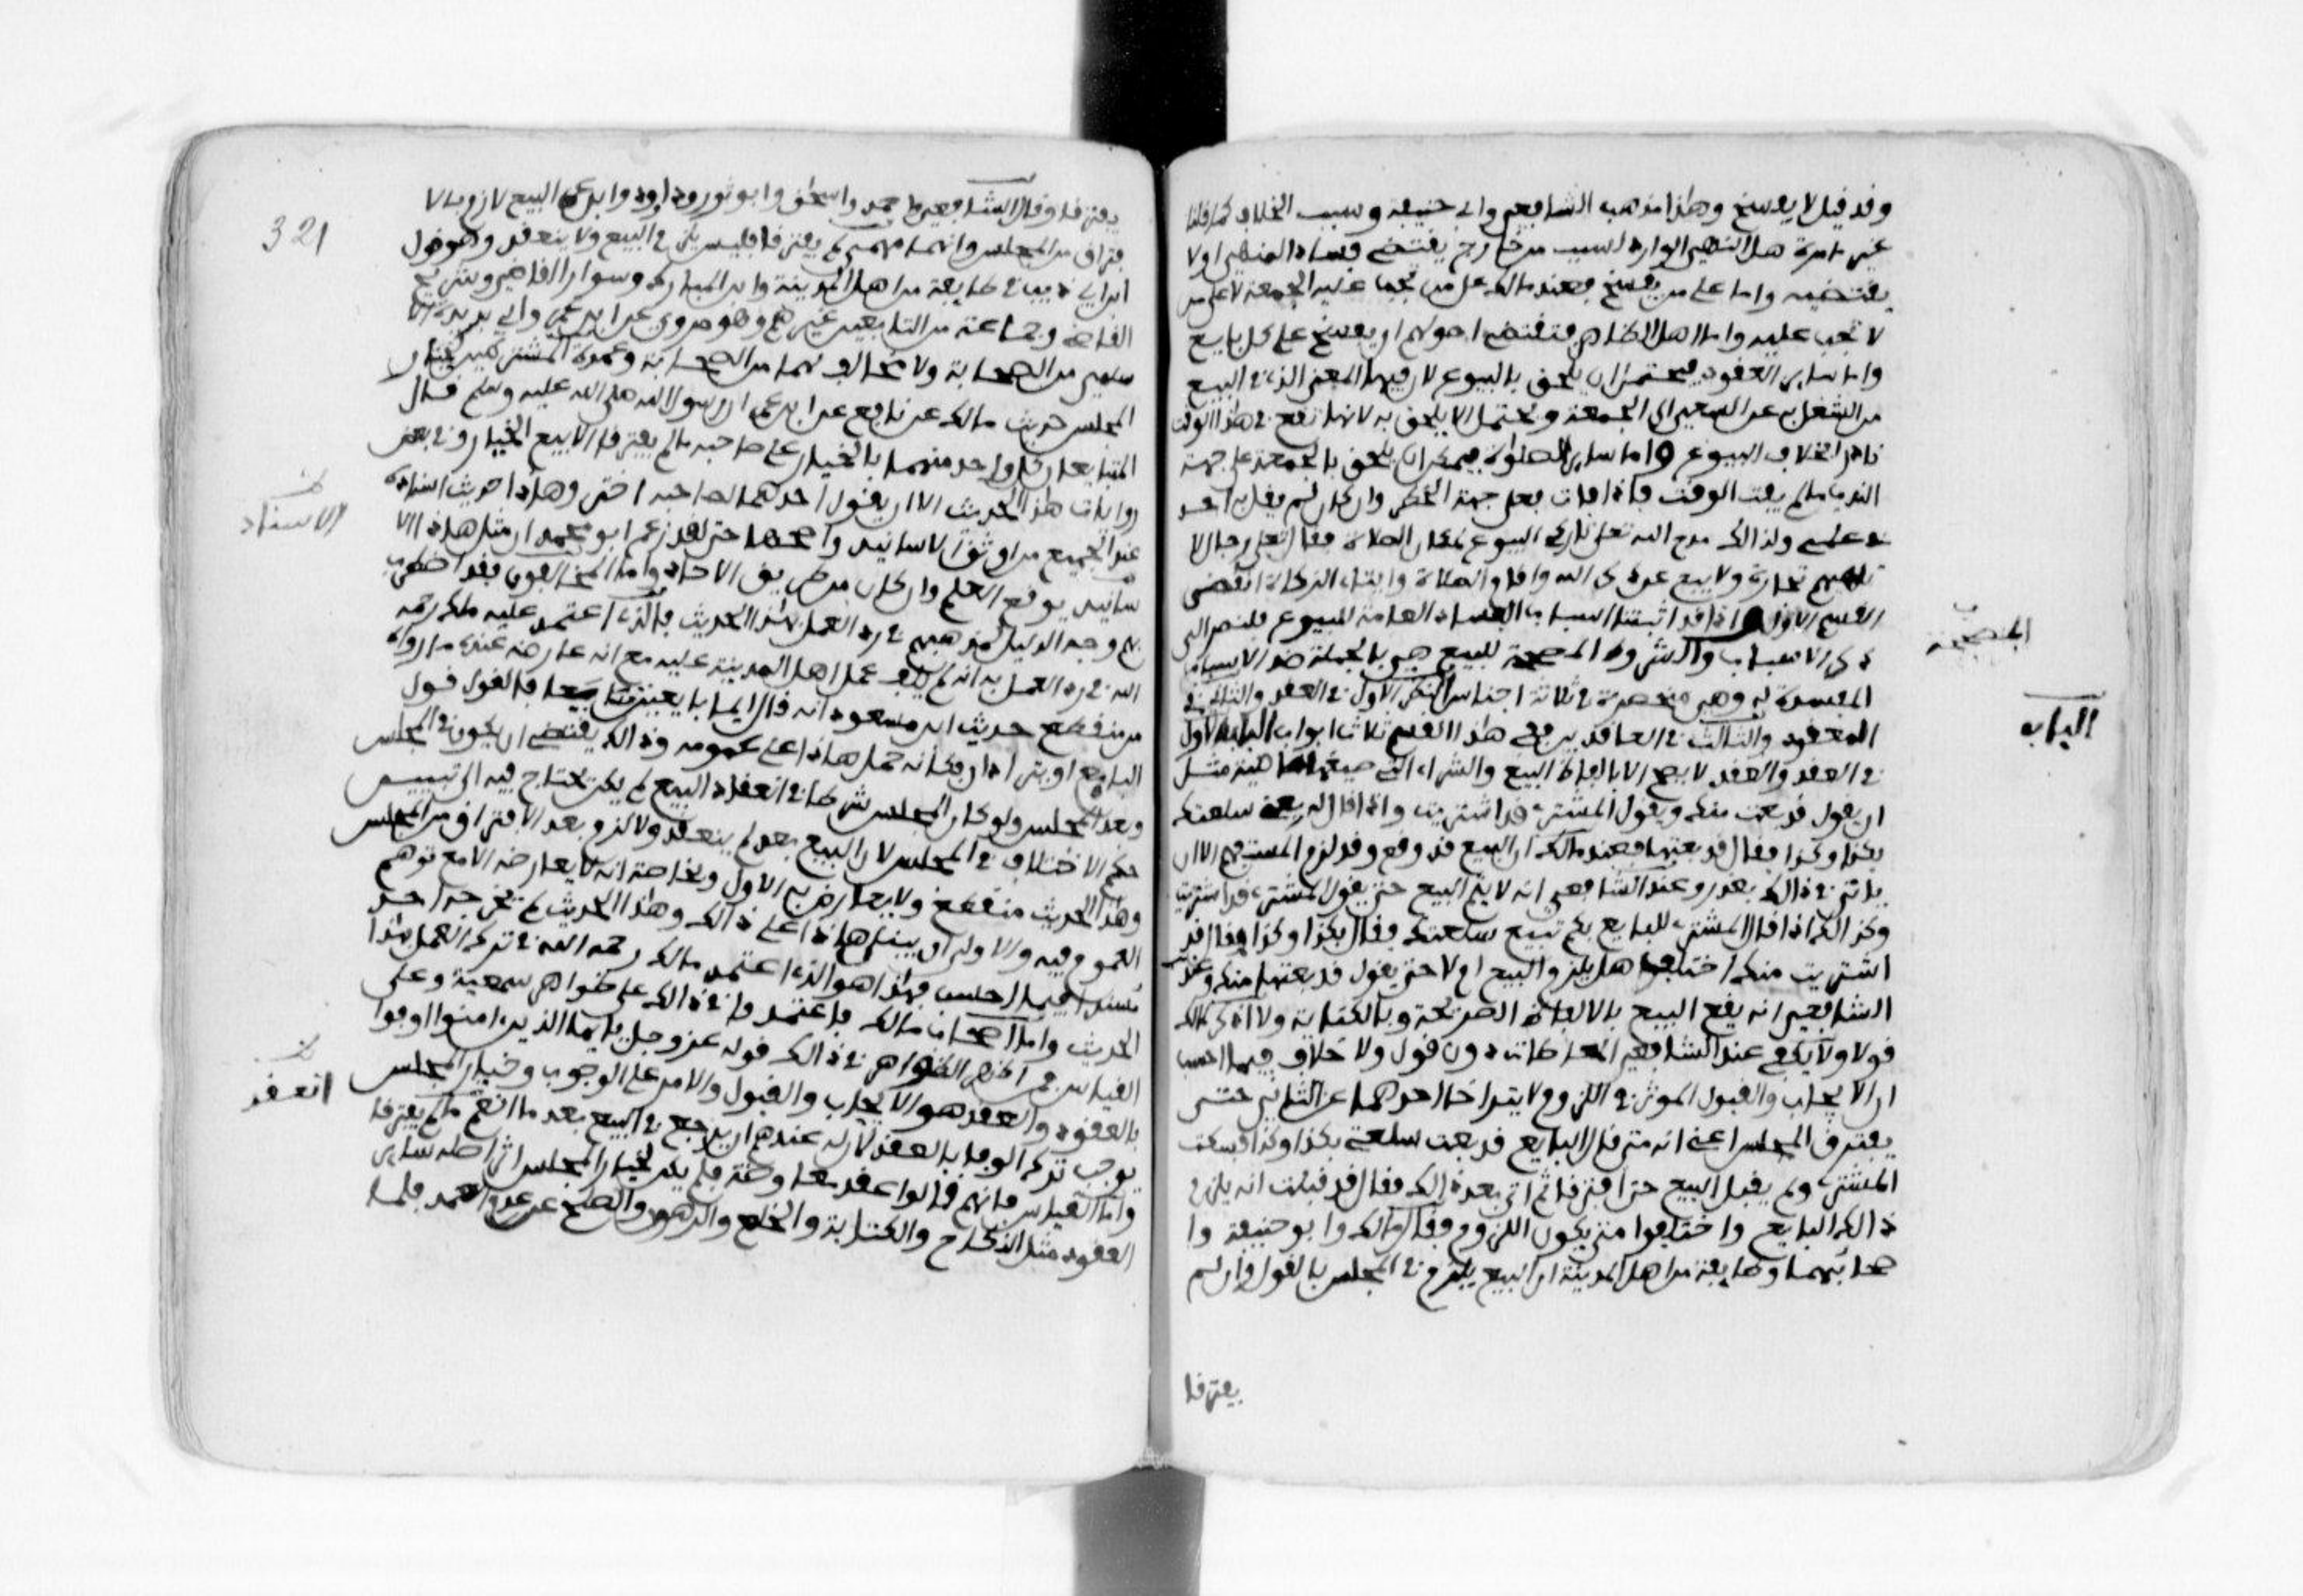 وقد قيل لا يفسخ وهذا مذهب الشافعي وابي حنيفة وسبب الخلاف كما قلنا
غير ما مرة هل النهي الوارد لسبب من خارج يقتضي فساد المنهي او لا
يقتضيه واما على من يفسخ فعند مالك على من تجب عليه الجمعة لا على من
لا تجب عليه واما اهل الظاهر فتقتضي اصولهم ان يفسخ على كل بايع
واما ساير العقود فيحتمل ان يلحق بالبيوع لان فيها المعنى الذي في البيع
من الشغل به عن السعي الى الجمعة ويحتمل الا يلحق به لانها تقع في هذا الوقت
نادرا بخلاف البيوع واما ساير الصلوات فيمكن ان يلحق بالجمعة على جهة
الندب ما لم يفت الوقت فاذا فات فعلى جهة الحظر وان كان لم يقل به احد
في علمي ولذالك مدح الله تعلى تاركي البيوع لمكان الصلاة فقال تعلى رجال لا
تلهيهم تجارة ولا بيع عن ذكر الله واقام الصلاة وايتاء الزكاة انقضى
القسم الاول واذ قد اثبتنا اسباب الفساد العامة للبيوع فلنصر الى
ذكر الاسباب والشروط المصححة للبيع هي بالجملة ضد الاسباب
المفسدة له وهي منحصرة في ثلاثة اجناس النظر الاول في العقد والثاني في
المعقود والثالث في العاقدين ففي هذا القسم ثلاث ابواب الباب الاول
في العقد والعقد لا يصح الا بالفاظ البيع والشراء التي صيغتها ماضية مثل
ان يقول قد بعت منك ويقول المشتري قد اشتريت واذا قال له بعني سلعتك
بكذا وكذا فقال قد بعتها فعند مالك ان البيع قد وقع وقد لزم المستفهم الا ان
ياتي في ذالك بعذر وعند الشافعي انه لا يتم البيع حتى يقول المشتري قد اشتريت
وكذالك اذا قال المشتري للبايع بكم تبيع سلعتك فقال بكذا وكذا فقال قد
اشتريت منك اختلفوا هل يلزم البيع ام لا حتى يقول قد بعتها منك وعند
الشافعي انه يقع البيع بالالفاظ الصريحة وبالكناية ولا اذكر لمالك
قولا ولا يكفي عند الشافعي المعاطات دون قول ولا خلاف فيما احسب
ان الايجاب والقبول الموثر في اللزوم لا يتراخا احدهما عن الثاني حتى
يفترق المجلس اعني انه متى قال البايع قد بعت سلعتي بكذا وكذا فسكت
المشتري ولم يقبل البيع حتى افترقا ثم اتى بعد ذالك فقال قد قبلت انه يلزم
ذالك البايع واختلفوا متى يكون اللزوم فقال مالك وابو حنيفة وا
صحابهما وطايفة من اهل المدينة ان البيع يلزم في المجلس بالقول وان لم
يفترقا
المصححة
الباب
321
يفترقا وقال الشافعي واحمد واسحق وابو ثور وداود وابن عمر البيع لازم بالا
فتراق من المجلس وانهما مهما لم يفترقا فليس يلزم البيع ولا ينعقد وهو قول
ابن ابي ذيب في طايفة من اهل المدينة وابن المبارك وسوار القاضي وشريح
القاضي وجماعة من التابعين غيرهم وهو مروي عن ابن عمر وابي برزة الا
سلمي من الصحابة ولا مخالف لهما من الصحابة وعمدة المشترطين لخيار
المجلس حديث مالك عن نافع عن ابن عمر ان رسول الله صلى الله عليه وسلم قال
المتبايعان كل واحد منهما بالخيار على صاحبه ما لم يفترقا الا بيع الخيار وفي بعض
روايات هذا الحديث الا ان يقول احدهما لصاحبه اختر وهذا حديث اسناده
عند الجميع من اوثق الاسانيد واصحها حتى لقد زعم ابو محمد ان مثل هذا الا
سانيد يوقع العلم وان كان من طريق الاحاد واما المخالفون فقد اضطرب
بهم وجه الدليل لمذهبهم في رد العمل بهذا الحديث فالذي اعتمد عليه مالك رحمه
الله في رد العمل به انه لم يلف عمل اهل المدينة عليه مع انه عارضه عنده ما رواه
من منقطع حديث ابن مسعود انه قال ايما بايعين تبايعا فالقول قول
البايع او يترادان فكانه حمل هذا على عمومه وذالك يقتضي ان يكون في المجلس
وبعد المجلس ولو كان المجلس شرطا في انعقاد البيع لم يكن يحتاج فيه الى تبيين
حكم الاختلاف في المجلس لان البيع بعد لم ينعقد ولا لزم بعد الافتراق من المجلس
وهذا الحديث منقطع ولا يعارض به الاول وبخاصة انه لا يعارضه الا مع توهم
العموم فيه والاولى ان يبنى هذا على ذالك وهذا الحديث لم يخرجه احد
مسندا فيما احسب فهذا هو الذي اعتمد مالك رحمه الله في ترك العمل بهذا
الحديث واما اصحاب مالك فاعتمدوا في ذالك على ظواهر سمعية وعلى
القياس فمن اظهر الظواهر في ذالك قوله عز وجل يايها الذين امنوا اوفوا
بالعقود والعقد هو الايجاب والقبول والامر على الوجوب وخيار المجلس
يوجب ترك الوفا بالعقد لان له عندهم ان يرجع في البيع بعد ما انعم ما لم يفترقا
واما القياس فانهم قالوا عقد معاوضة فلم يكن لخيار المجلس اثر اصله ساير
العقود مثل النكاح والكتابة والخلع والرهون والصلح عن دم العمد فلما
الاسناد
انعقد